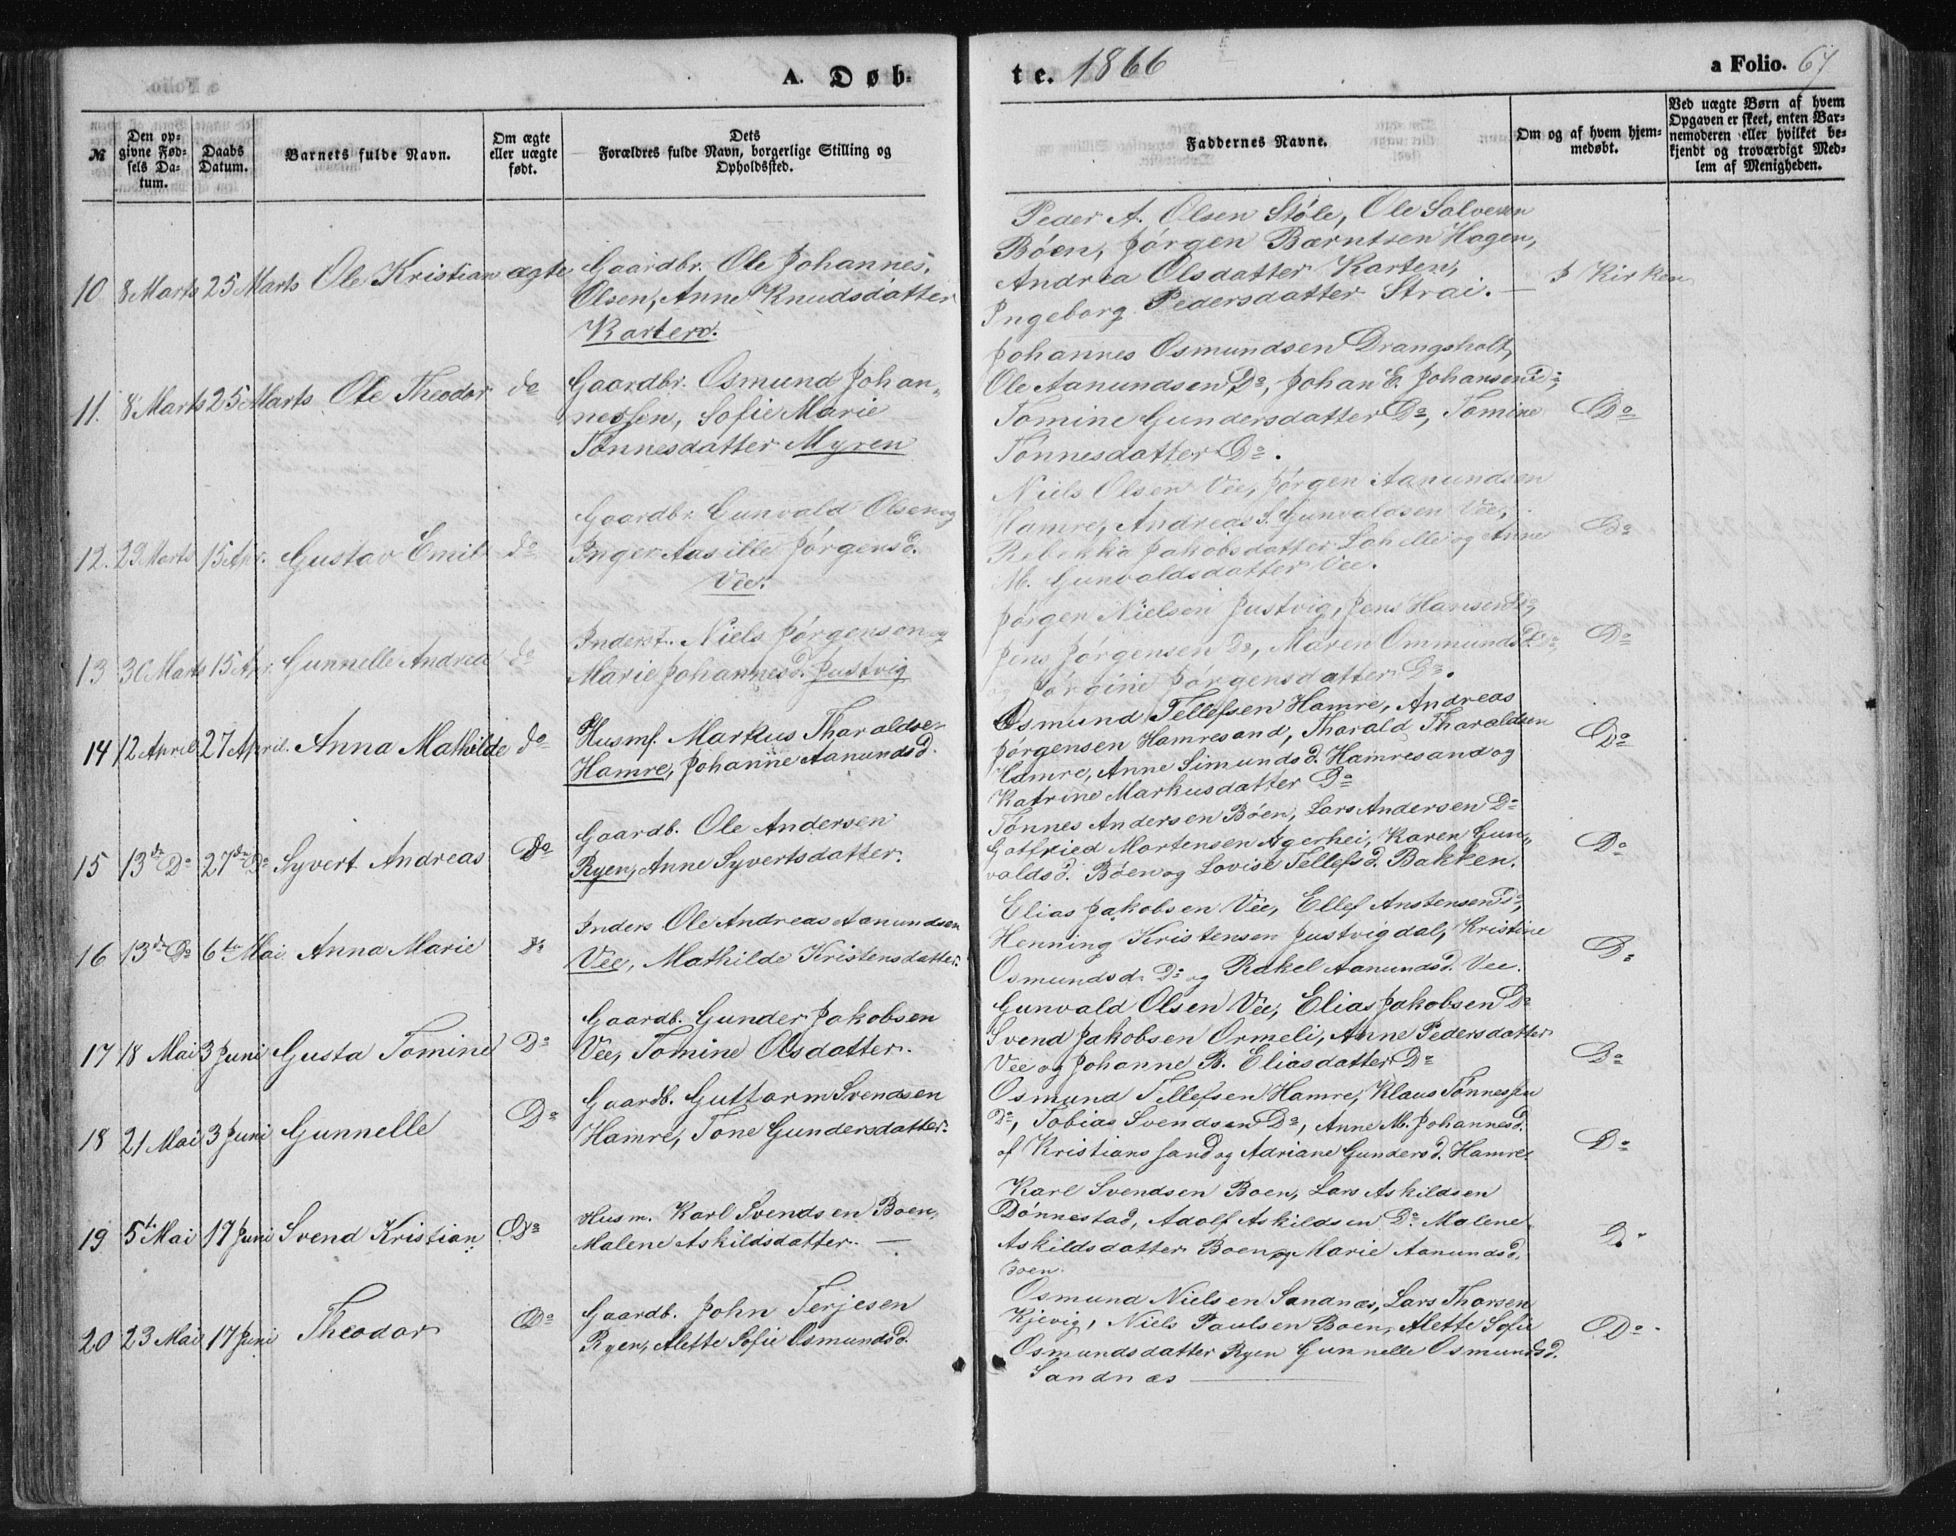 A. Døb-
te. 1866
a Folio. 67
№
Den op-
givne Fød-
sels Da-
tum.
Daabs
Datum.
Barnets fulde Navn.
Om ægte
eller uægte
født.
Dets
Forældres fulde Navn, borgerlige Stilling og
Opholdssted.
Faddernes Navne.
Om og af hvem hjem-
medøbt.
Ved uægte Børn af hvem
Opgaven er skeet, enten Bar-
nemoderen eller hvilket be-
kjendt og troværdigt Med-
lem af Menigheden.
10 8 Marts 25 Marts Ole Kristian ægte
Gaardbr. Ole Johannes.
Olsen, Anne Knudsdatter
Karten.
Peder A. Olsen Støle, Ole Salvesen
Bøen, Jørgen Bærntsen Hagen,
Andrea Olsdatter Karten,
Ingeborg Pedersdatter Strai. — I Kirken
11. 8 Marts 25 Marts Ole Theodor do
Gaardbr. Osmund Johan-
nessen, Sofie Marie
Tønnesdatter Myren
Johannes Osmundsen Drangsholt,
Ole Aanundsen Do, Johan E. Johansen Do,
Tomine Gundersdatter Do, Tomine Do
Tønnesdatter Do.
12. 29 Marts 15 Apr. Gustav Emil do
Gaardbr. Gunvald Olsen og
Inger Aasille Jørgensd.
Vee.
Niels Olsen Vee, Jørgen Aanundsen
Hamre, Andreas S. Gunvaldsen Vee,
Rebekka Jakobsdatter Lahelle og Anne Do
M. Gunvaldsdatter Vee.
13 30 Marts 15 Apr. Gunnelle Andrea do
Inderst. Niels Jørgensen og
Marie Johannesd. Justvig
Jørgen Nielsen Justvig, Jens Hansen Do,
Jens Jørgensen Do, Maren Ommundsd. Do, Do
og Jørgine Jørgensdatter Do.
14 12 April 27 April. Anna Mathilde do
Husmf. Markus Tharaldse-
Hamre, Johanne Aanundsd.
Osmund Tellefsen Hamre, Andreas
Jørgensen Hamresand, Tharald Tharaldsen Do
Hamre, Anne Simundsd. Hamresand og
Katrine Markusdatter Do
15 13de Do 27de Do Syvert Andreas Do
Gaardb. Ole Andersen
Ryen, Anne Syvertsdatter.
Tønnes Andersen Bøen, Lars Andersen Do
Gothfried Mortensen Agerhei, Karen Gun- Do
valdsd. Bøen og Lovise Tellefsd. Bakken.
16 13de Do 6te Mai Anna Marie do
Inders Ole Andreas Aanundsen
Vee, Mathilde Kristensdatter.
Elias Jakobsen Vee, Ellef Anstensen Do,
Henning Kristensen Justvigdal, Kristine Do
Osmundsd. Do og Rakel Aanundsd. Vee.
17 18 Mai 3 Juni Gusta Tomine Do
Gaardb. Gunder Jakobsen
Vee, Tomine Olsdatter.
Gunvald Olsen Vee, Elias Jakobsen Do
Svend Jakobsen Ormeli, Anne Pedersdatter
Vee og Johanne B. Eliasdatter Do Do
18 21 Mai 3 Juni Gunnelle Do
Gaardb. Guttorm Svendsen
Hamre, Tone Gundersdatter.
Osmund Tellefsen Hamre, Klaus Tønnessen
Do, Tobias Svendsen Do, Anne M. Johannesd. Do
af Kristianssand og Adriane Gundersd. Hamre.
19 5te Mai 17 Juni Svend Kristian Do
Husm. Karl Svendsen Boen,
Malene Askildsdatter. —
Karl Svendsen Boen, Lars Askildsen
Dønnestad, Adolf Askildsen Do. Malene Do
Askildsdatter Boen og Marie Aanundsd.
Boen.
20 23 Mai 17 Juni Theodor Do
Gaardb. John Terjesen
Ryen, Alette Sofie Osmundsd.
Osmund Nielsen Sandnæs, Lars Thorsen
Kjevig, Niels Paulsen Boen, Alette Sofie Do
Osmundsdatter Ryen Gunnelle Osmundsd.
Sandnæs —